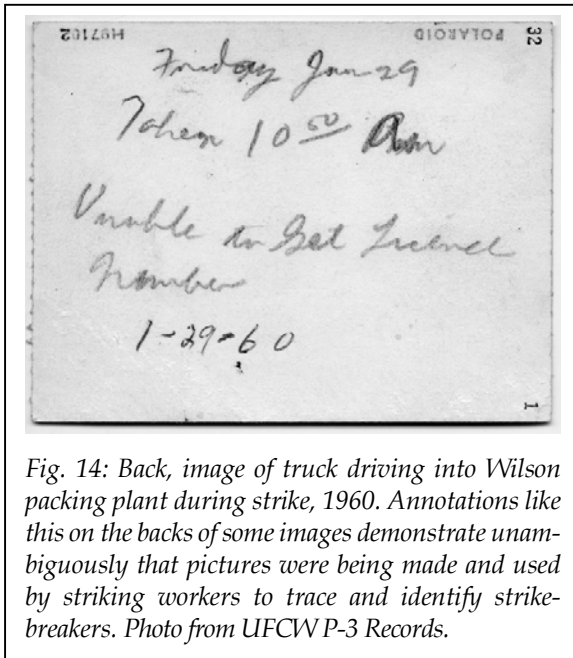 H97102 POLAROID 32
Friday Jan 29
Taken 10 50 Am
Unable to Get Licence
Number
1-29-60
1
Fig. 14: Back, image of truck driving into Wilson
packing plant during strike, 1960. Annotations like
this on the backs of some images demonstrate unam-
biguously that pictures were being made and used
by striking workers to trace and identify strike-
breakers. Photo from UFCW P-3 Records.